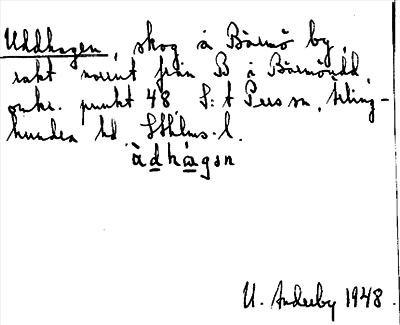 Uddhagen, skog å Bärmö by,
rakt norrut från B å Bärmöudd,
omkr. punkt 48, S:t Pers sn, Seling-
hundra hd Sthlms. l.
àdhàgən
U. Anderby 1948.